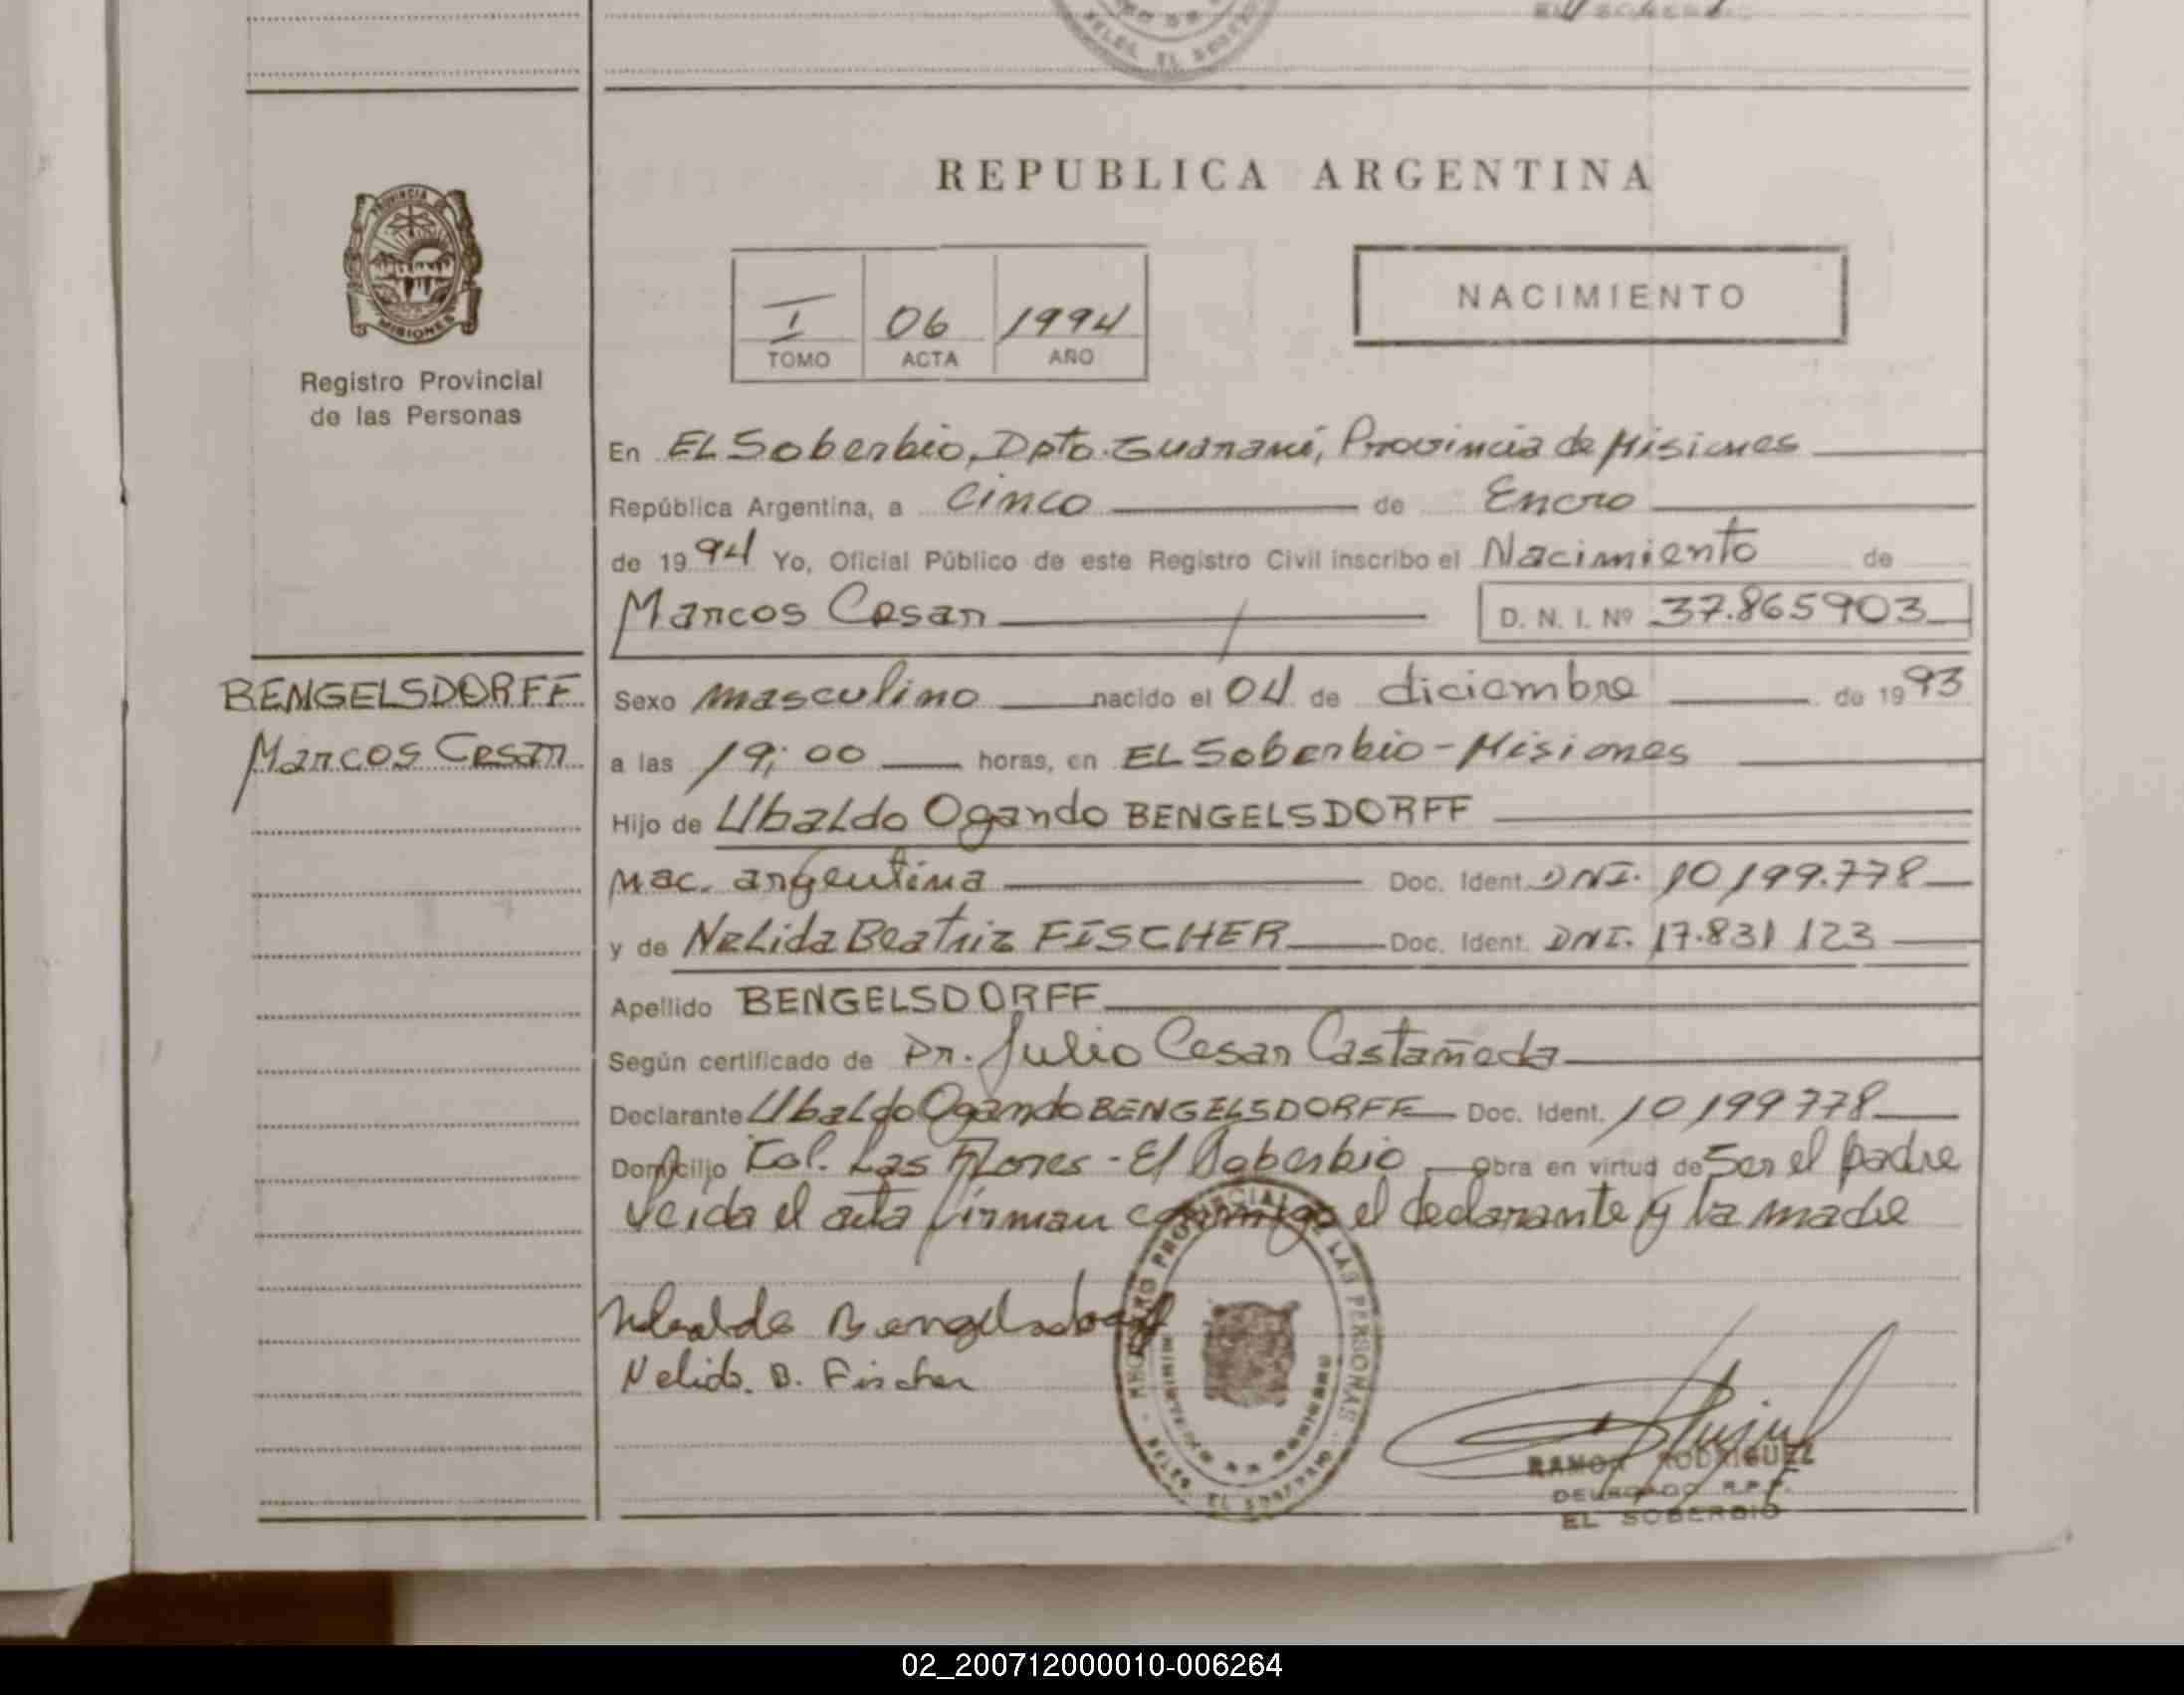 REPUBLICA ARGENTINA
PROVINCIA DE
MISIONES
Registro Provincial
de las Personas
I 06 1994
TOMO ACTA AÑO
NACIMIENTO
En EL Soberbio, Dpto. Guaraní, Provincia de Misiones
República Argentina, a Cinco de Enero
de 1994 Yo, Oficial Público de este Registro Civil inscribo el Nacimiento de
Marcos Cesar D. N. I. Nº 37.865903
BENGELSDORFF
Marcos Cesar
Sexo masculino nacido el 04 de diciembre de 1993
a las 19;00 horas, en EL Soberbio - Misiones
Hijo de Ubaldo Ogando BENGELSDORFF
nac. argentina Doc. Ident. DNI. 10199.778
y de Nelida Beatriz FISCHER Doc. Ident. DNI. 17.831123
Apellido BENGELSDORFF
Según certificado de Dr. Julio Cesar Castañeda
Declarante Ubaldo Ogando BENGELSDORFF Doc. Ident. 10199778
Domicilio Col. Las Flores - El Soberbio Obra en virtud de Ser el padre
Leida el acta firman conmigo el declarante y la madre
Ubaldo Bengelsdorff
Nelida. B. Fischer
REGISTRO PROVINCIAL DE LAS PERSONAS
MINISTERIO DE GOBIERNO
DELEG. EL SOBERBIO
RAMON RODRIGUEZ
DELEGADO R.P.P.
EL SOBERBIO
02_200712000010-006264